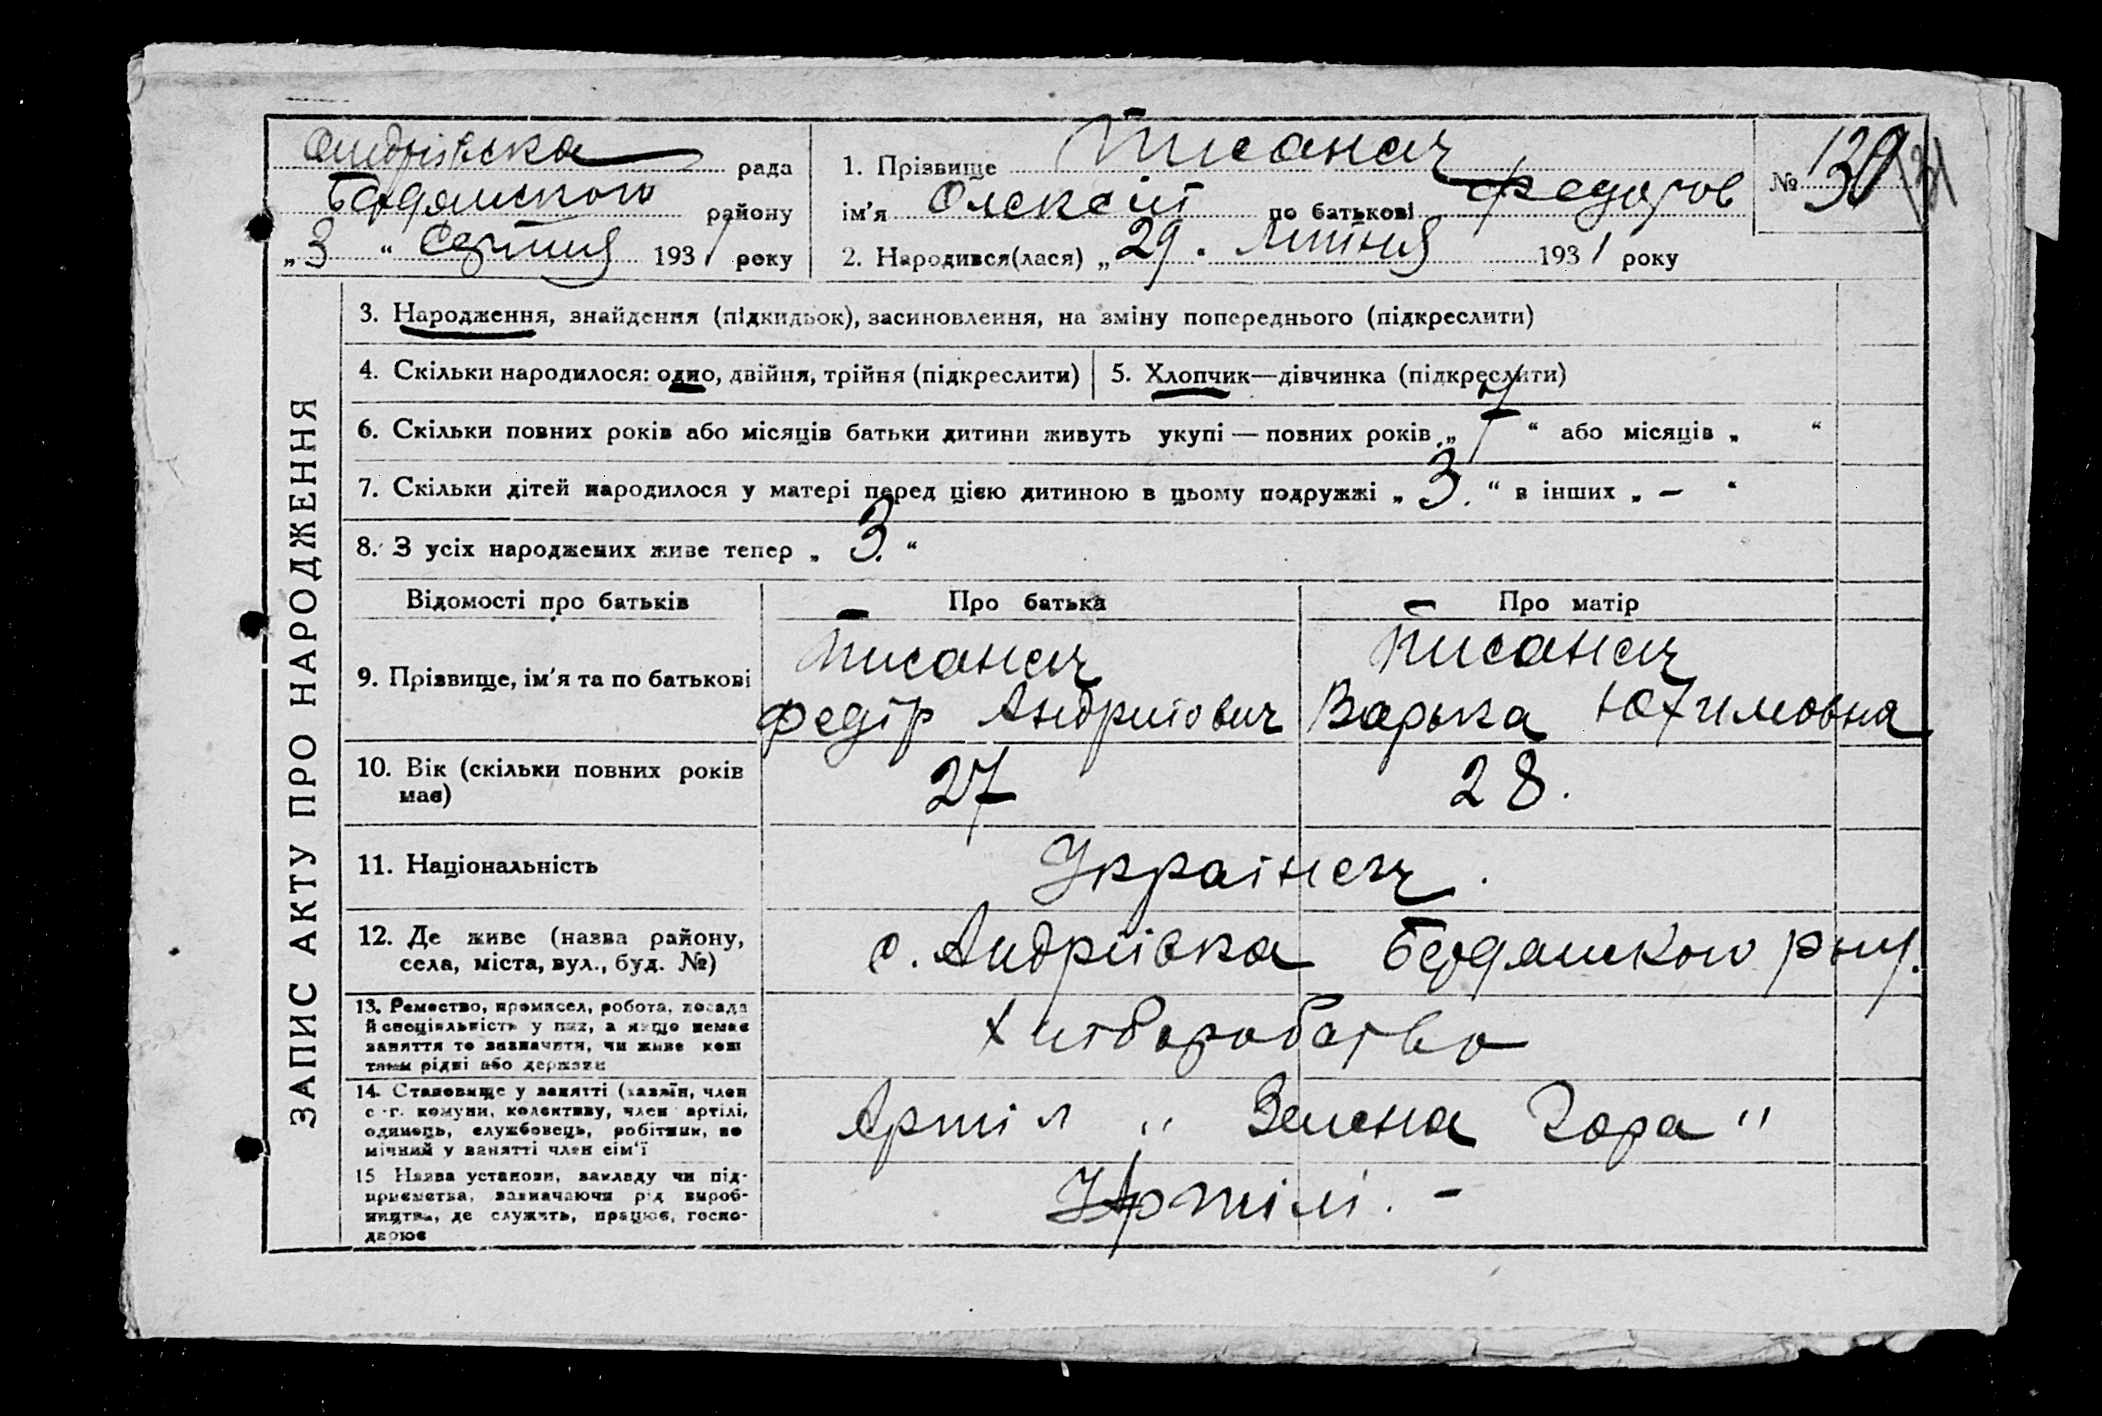 Андріївська рада
Бердянського району
„3" Серпня 1931 року
1. Прізвище Писанец
ім'я Олексій по батькові Федоров
2. Народився(лася) „29. Липня 1931 року
№ 130
ЗАПИС АКТУ ПРО НАРОДЖЕННЯ
3. Народження, знайдення (підкидьок), засиновлення, на зміну попереднього (підкреслити)
4. Скільки народилося: одно, двійня, трійня (підкреслити)
5. Хлопчик—дівчинка (підкреслити)
6. Скільки повних років або місяців батьки дитини живуть укупі — повних років „7" або місяців „ "
7. Скільки дітей народилося у матері перед цією дитиною в цьому подружжі „3." в інших „–"
8. З усіх народжених живе тепер „3."
Відомості про батьків
Про батька
Про матір
9. Прізвище, ім'я та по батькові
Писанец
Федір Андрійович
Писанец
Варька Юхимовна
10. Вік (скільки повних років має)
27
28.
11. Національність
Українец.
12. Де живе (назва району,
села, міста, вул., буд. №)
с. Андріївка Бердянського р-ну.
13. Ремество, промисел, робота, посада
й спеціяльність у них, а якщо немає
заняття то зазначити, чи живе кош
тами рідні або держави
Хліборобство
14. Становище у занятті (хазяїн, член
с.-г. комуни, колективу, член артілі,
одинець, службовець, робітник, по
мічний у занятті член сім'ї
Артіл „Зелена Гора"
15 Назва установи, закладу чи під-
приємства, зазначаючи рід вироб-
ництва, де служить, працює, госпо-
дарює
Артілі. –